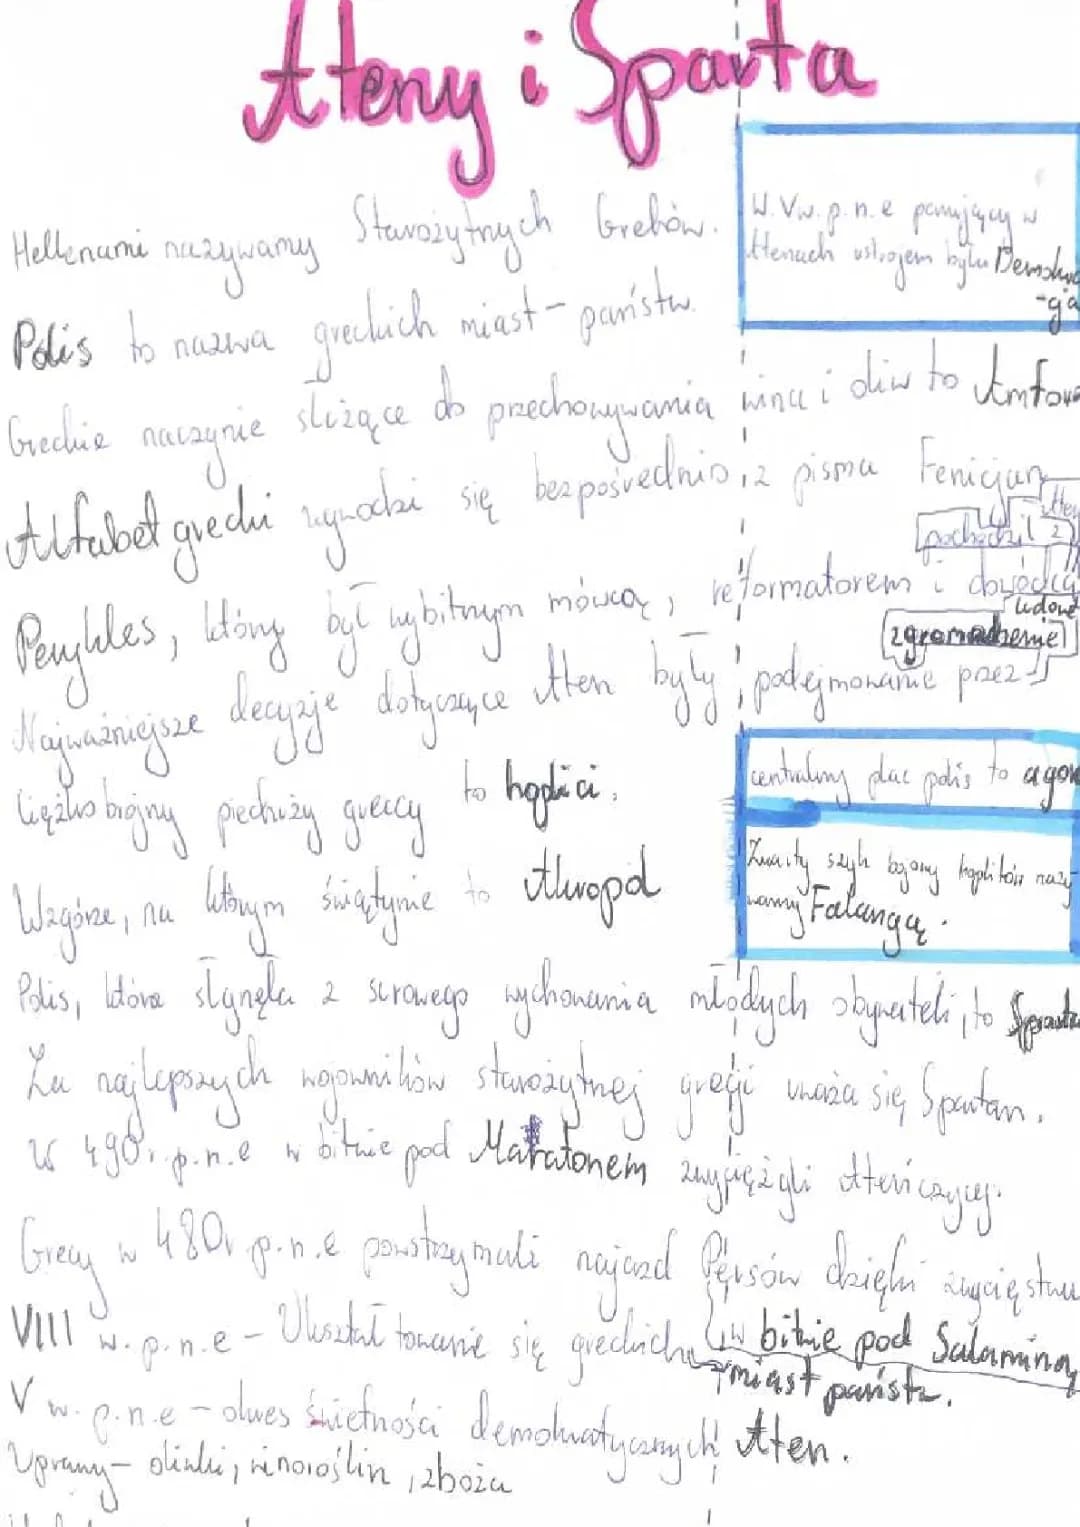 Ateny i Sparta
W. V w. p. n. e panujący w
Atenach ustrojem była Demokra
-cja
Hellenami nazywamy Starożytnych Greków.
Polis to nazwa greckich miast-państw.
Greckie naczynie służące do przechowywania wina i oliw to Amfora
Alfabet grecki wywodzi się bezpośrednio z pisma Fenicjan
Aten
pochodził z
Perykles, który był wybitnym mówcą, reformatorem i dowódcą
ludowe
zgromadzenie
Najważniejsze decyzje dotyczące Aten były podejmowanie przez
ciężko brojny piechurzy greccy to hoplici.
centralny plac polis to agora
Zwarty szyk bojowy hoplitów nazy-
wamy Falangą.
Wzgórze, na którym świątynie to Akropol
Polis, która słynęła z surowego wychowania młodych obywateli, to Sparta
Za najlepszych wojowników starożytnej grecji uważa się Spartan.
W 490r. p.n.e w bitwie pod Maratonem zwyciężyli Ateńczycy.
Grecy w 480r p.n.e powstrzymali najazd Persów dzięki zwycięstwu
w bitwie pod Salaminą
VIII w. p.n.e - Ukształtowanie się greckich
miast państw.
V w. p.n.e - okres świetności demokratycznych Aten.
Uprawy- oliwki, winorośln, zboża